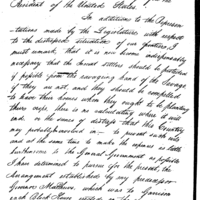 President of the United States.
In addition to the Represen
tations made by the Legislature with respect
to the distressed situation of our frontiers, I
must remark, that it is now become indispensably
necessary that the Loyal settlers should be protected
if possible from the ravaging hand of the savage
if they are not, and they should be compelled
to leave their homes when they ought to be planting
their crops, thus a calamitous where it will
end, or the sense of distress that this Country
may probably be involved in - to prevent such evils
and at the same time to make the expence as little
burthensome to the General Government as possible
I have determined to pursue for the present, the
arrangement established by my predecessor
Governor Mathews, which was to Garrison
each Block House